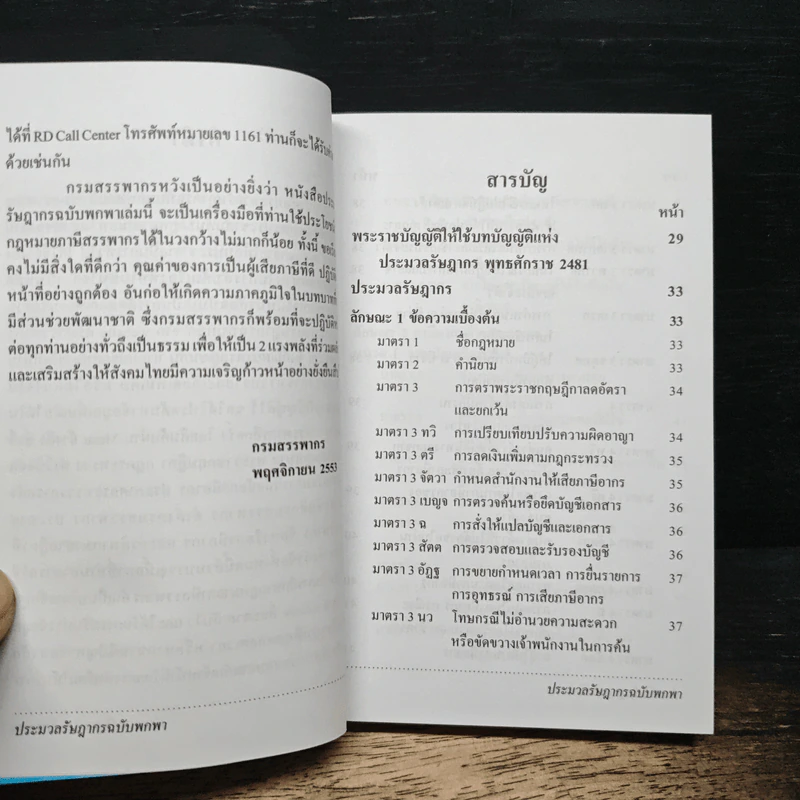 ได้ที่ RD Call Center โทรศัพท์หมายเลข 1161 ท่านก็จะได้รับ
ด้วยเช่นกัน
กรมสรรพากรหวังเป็นอย่างยิ่งว่า หนังสือประ
รัษฎากรฉบับพกพาเล่มนี้ จะเป็นเครื่องมือที่ท่านใช้ประโยชน์
กฎหมายภาษีสรรพากรได้ในวงกว้างไม่มากก็น้อย ทั้งนี้
คงไม่มีสิ่งใดที่ดีกว่า คุณค่าของการเป็นผู้เสียภาษีที่ดี ปฏิบัติ
หน้าที่อย่างถูกต้อง อันก่อให้เกิดความภาคภูมิใจในบทบาทที่
มีส่วนช่วยพัฒนาชาติ ซึ่งกรมสรรพากรก็พร้อมที่จะปฏิบัติ
ต่อทุกท่านอย่างทั่วถึงเป็นธรรม เพื่อให้เป็น 2 แรงพลังที่ร่วม
และเสริมสร้างให้สังคมไทยมีความเจริญก้าวหน้าอย่างยั่งยืน
กรมสรรพากร
พฤศจิกายน 2553
ประมวลรัษฎากรฉบับพกพา
สารบัญ
หน้า
พระราชบัญญัติให้ใช้บทบัญญัติแห่ง 29
ประมวลรัษฎากร พุทธศักราช 2481
ประมวลรัษฎากร 33
ลักษณะ 1 ข้อความเบื้องต้น 33
มาตรา 1 ชื่อกฎหมาย 33
มาตรา 2 คำนิยาม 33
มาตรา 3 การตราพระราชกฤษฎีกาลดอัตรา 34
และยกเว้น
มาตรา 3 ทวิ การเปรียบเทียบปรับความผิดอาญา 34
มาตรา 3 ตรี การลดเงินเพิ่มตามกฎกระทรวง 35
มาตรา 3 จัตวา กำหนดสำนักงานให้เสียภาษีอากร 35
มาตรา 3 เบญจ การตรวจค้นหรือยึดบัญชีเอกสาร 36
มาตรา 3 ฉ การสั่งให้แปลบัญชีและเอกสาร 36
มาตรา 3 สัตต การตรวจสอบและรับรองบัญชี 36
มาตรา 3 อัฏฐ การขยายกำหนดเวลา การยื่นรายการ 37
การอุทธรณ์ การเสียภาษีอากร
มาตรา 3 นว โทษกรณีไม่อำนวยความสะดวก 37
หรือขัดขวางเจ้าพนักงานในการค้น
ประมวลรัษฎากรฉบับพกพา